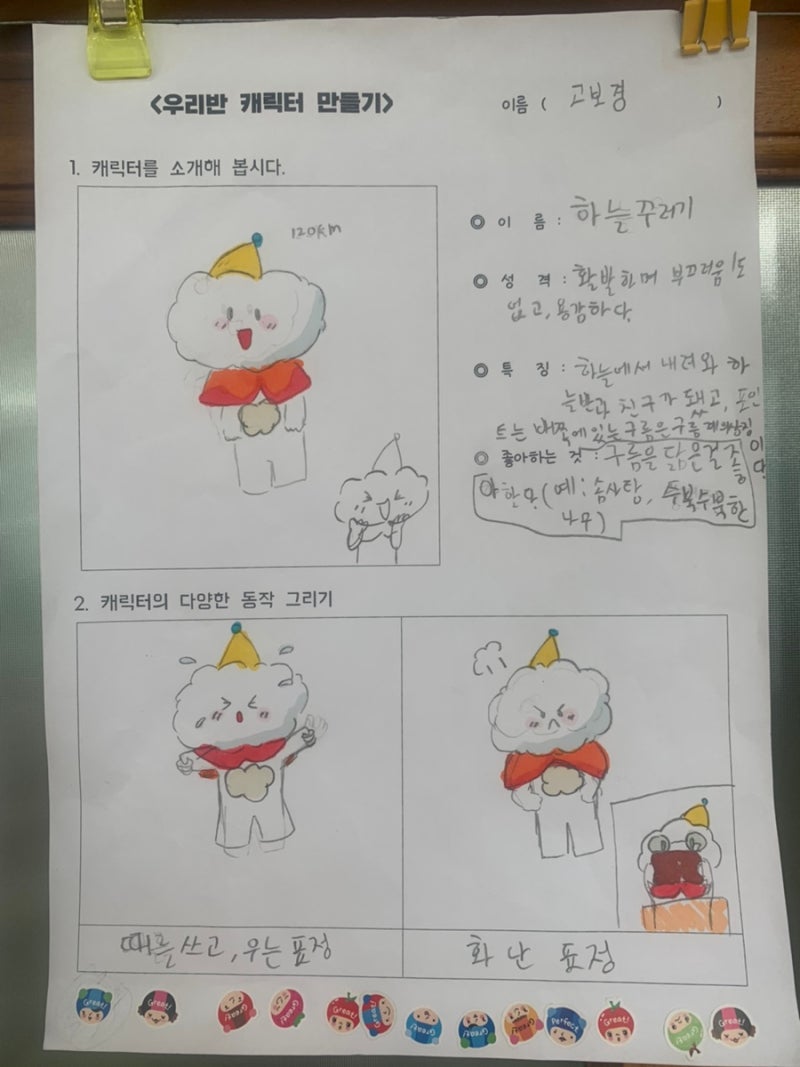 <우리반 캐릭터 만들기>
이름 ( 고보경 )
1. 캐릭터를 소개해 봅시다.
120KM
◎ 이 름 : 하늘꾸러기
◎ 성 격 : 활발하며 부끄러움도
없고, 용감하다.
◎ 특 징 : 하늘에서 내려와 하
늘반과 친구가 됐고, 포인
트는 배쪽에 있는 구름은 구름 상징
이다
◎ 좋아하는 것 : 구름을 닮은걸 좋
아한다 (예: 솜사탕, 수북수북한
나무)
2. 캐릭터의 다양한 동작 그리기
떼를 쓰고, 우는 표정
화난 표정
Great! Great! Great! Great! Great! Great! Great! Great! Great! Perfect Great! Great! Great!